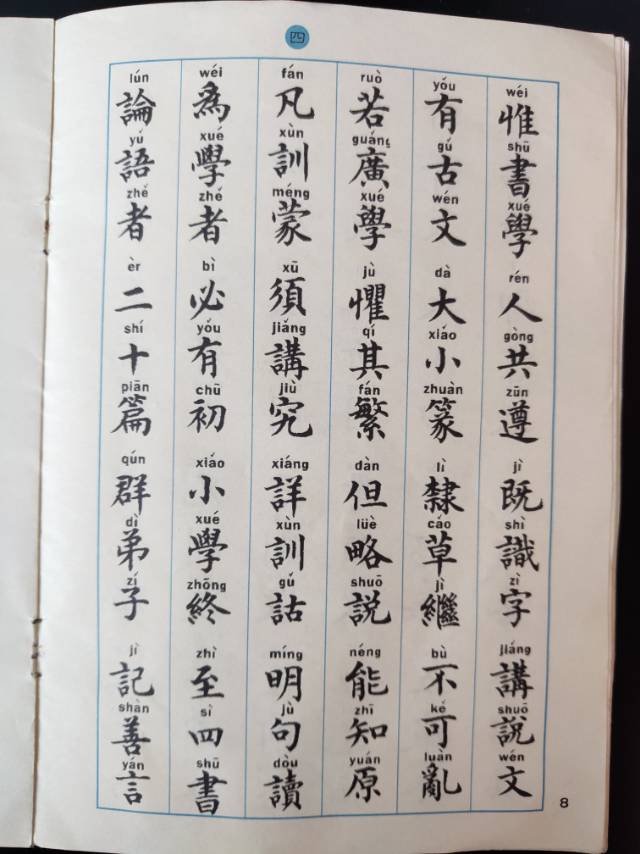 四
wéi shū xué rén gòng zūn jì shì zì jiǎng shuō wén
惟書學人共遵既識字講説文
yǒu gǔ wén dà xiǎo zhuàn lì cǎo jì bù kě luàn
有古文大小篆隸草繼不可亂
ruò guǎng xué jù qí fán dàn lüè shuō néng zhī yuán
若廣學懼其繁但略説能知原
fán xùn méng xū jiǎng jiù xiáng xùn gǔ míng jù dòu
凡訓蒙須講究詳訓詁明句讀
wéi xué zhě bì yǒu chū xiǎo xué zhōng zhì sì shū
為學者必有初小學終至四書
lún yǔ zhě èr shí piān qún dì zǐ jì shàn yán
論語者二十篇群弟子記善言
8